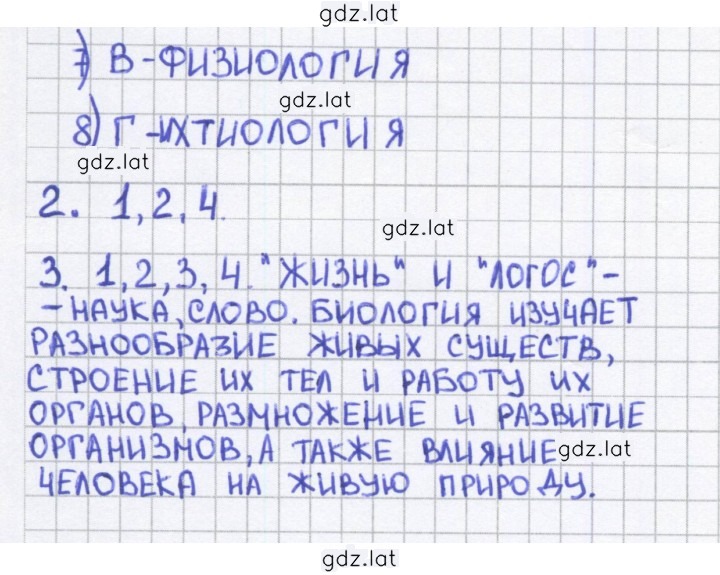 gdz.lat
7) В-ФИЗИОЛОГИЯ
gdz.lat
8) Г-ИХТИОЛОГИЯ
gdz.lat
2. 1,2,4.
gdz.lat
3. 1,2,3,4. "ЖИЗНЬ" И "ЛОГОС"-
-НАУКА,СЛОВО. БИОЛОГИЯ ИЗУЧАЕТ
РАЗНООБРАЗИЕ ЖИВЫХ СУЩЕСТВ,
СТРОЕНИЕ ИХ ТЕЛ И РАБОТУ ИХ
ОРГАНОВ, РАЗМНОЖЕНИЕ И РАЗВИТИЕ
ОРГАНИЗМОВ,А ТАКЖЕ ВЛИЯНИЕ
gdz.lat
ЧЕЛОВЕКА НА ЖИВУЮ ПРИРОДУ.
gdz.lat